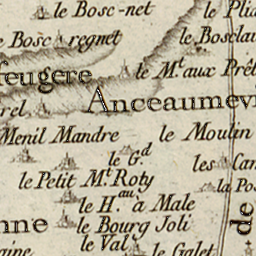 le Bosc-net
le Bosc regnet
le Bosclau
feugere
le Mt. aux Prêt
Anceaumevi
rel
Menil Mandre
le Moulin
le Gd.
les Can
le Petit Mt. Roty
la Po
le Hau. à Male
nne
le Bourg Joli
de
le Val
le Galet
aine